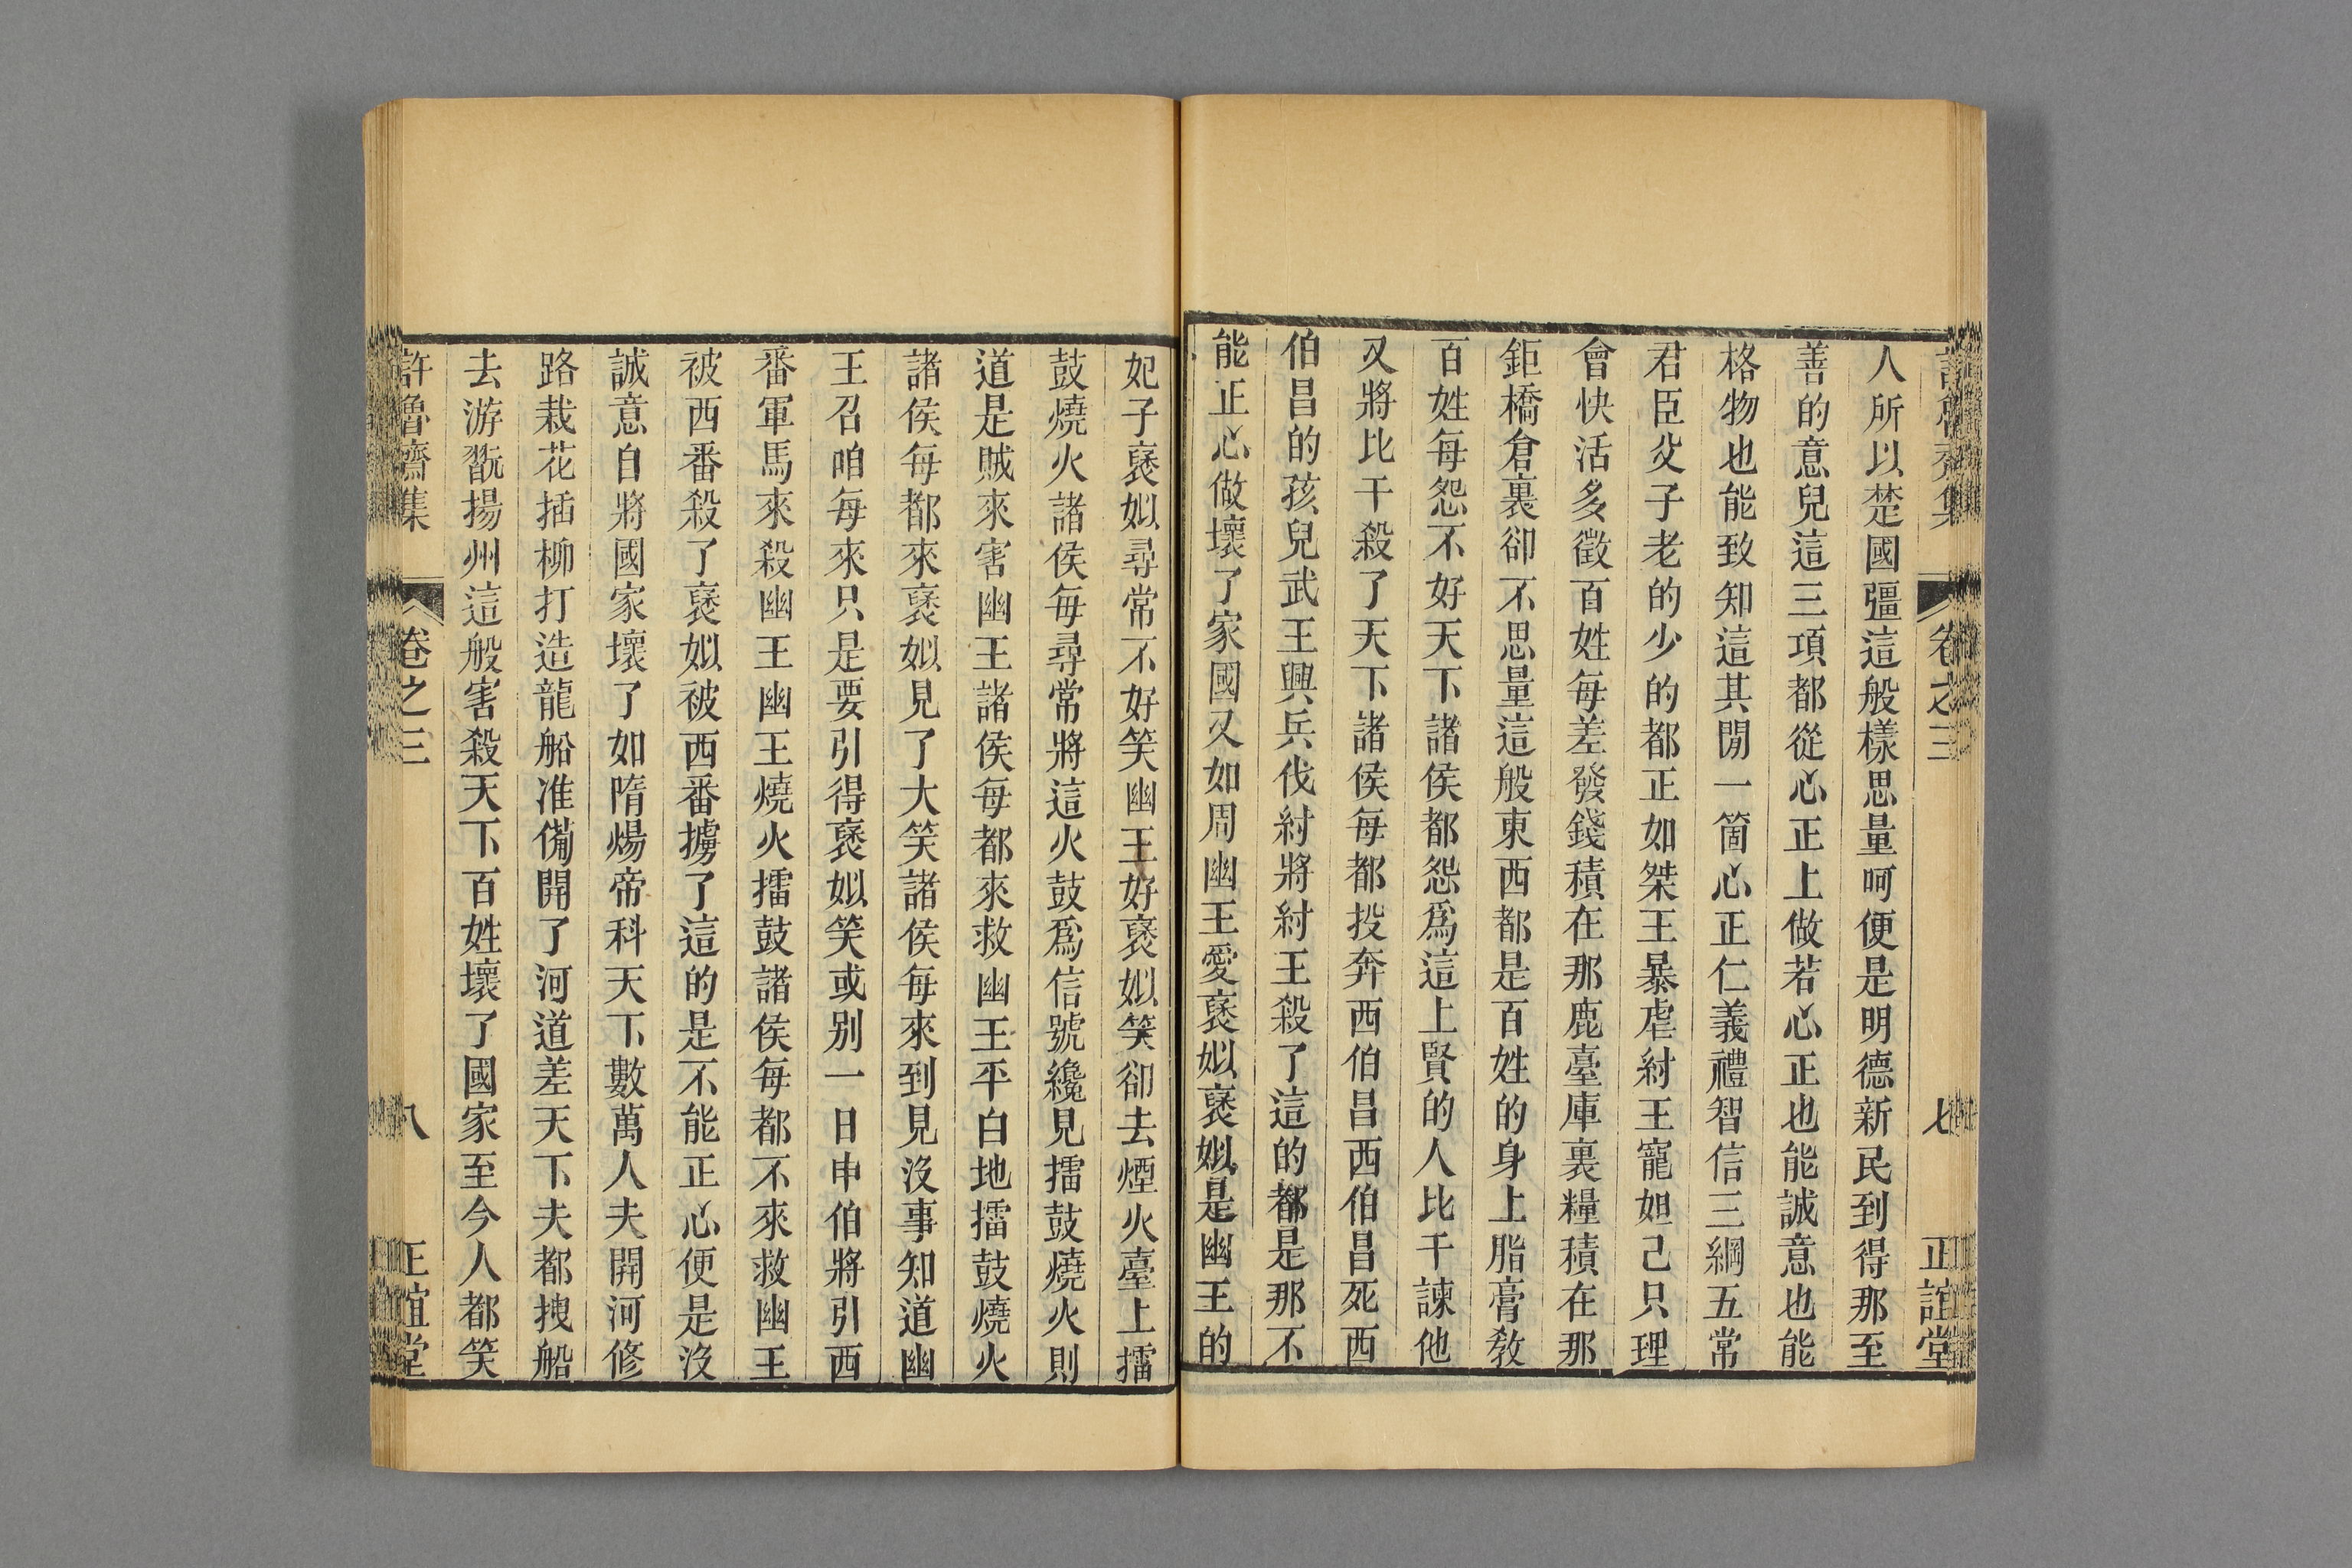 許魯齊集 卷之三 七 正誼堂
人所以楚國彊這般樣思量呵便是明德新民到得那至
善的意兒這三項都從心正上做若心正也能誠意也能
格物也能致知這其閒一箇心正仁義禮智信三綱五常
君臣父子老的少的都正如桀王暴虐紂王寵妲己只理
會快活多徵百姓每差發錢積在那鹿臺庫裏糧積在那
鉅橋倉裏卻不思量這般東西都是百姓的身上脂膏敎
百姓每怨不好天下諸侯都怨爲這上賢的人比干諫他
又將比干殺了天下諸侯每都投奔西伯昌西伯昌死西
伯昌的孩兒武王興兵伐紂將紂王殺了這的都是那不
能正心做壞了家國又如周幽王愛褒姒褒姒是幽王的
妃子褒姒尋常不好笑幽王好褒姒笑卻去煙火臺上擂
鼓燒火諸侯每尋常將這火鼓爲信號纔見擂鼓燒火則
道是賊來害幽王諸侯每都來救幽王平白地擂鼓燒火
諸侯每都來褒姒見了大笑諸侯每來到見沒事知道幽
王召咱每來只是要引得褒姒笑或別一日申伯將引西
番軍馬來殺幽王幽王燒火擂鼓諸侯每都不來救幽王
被西番殺了褒姒被西番擄了這的是不能正心便是沒
誠意自將國家壞了如隋煬帝科天下數萬人夫開河修
路栽花插柳打造龍船准備開了河道差天下夫都拽船
去游翫揚州這般害殺天下百姓壞了國家至今人都笑
許魯齊集 卷之三 八 正誼堂